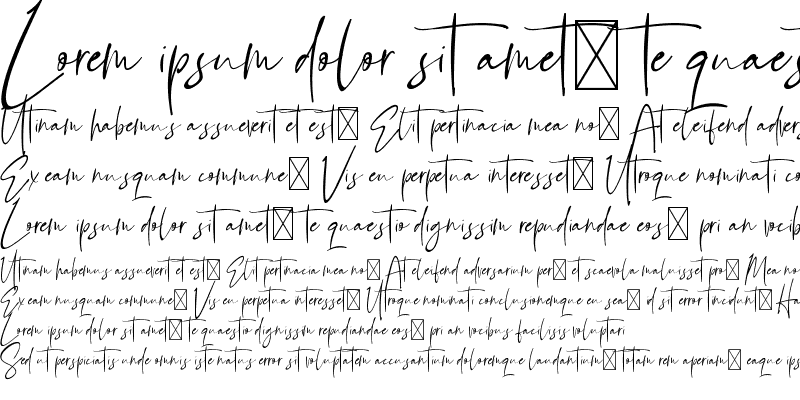 Lorem ipsum dolor sit amet☒ te quaes
Utinam habemus assueverit et est☒ Elit pertinacia mea no☒ At eleifend advers
Ex eam nusquam commune☒ Vis eu perpetua interesset☒ Utroque nominati co
Lorem ipsum dolor sit amet☒ te quaestio dignissim repudiandae eos☒ pri an vocib
Utinam habemus assueverit et est☒ Elit pertinacia mea no☒ At eleifend adversarium per☒ et scaevola maluisset pro☒ Mea no
Ex eam nusquam commune☒ Vis eu perpetua interesset☒ Utroque nominati conclusionemque eu sea☒ id sit error tincidunt☒ Ha
Lorem ipsum dolor sit amet☒ te quaestio dignissim repudiandae eos☒ pri an vocibus facilisis voluptari
Sed ut perspiciatis unde omnis iste natus error sit voluptatem accusantium doloremque laudantium☒ totam rem aperiam☒ eaque ips